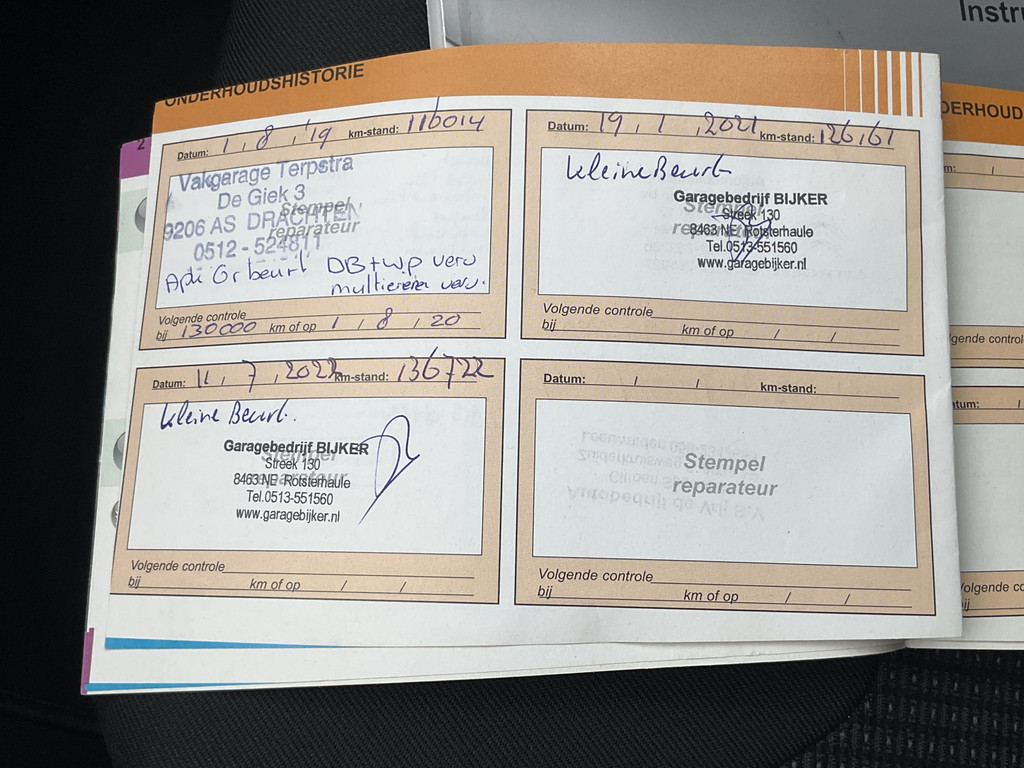 Instru
ONDERHOUDSHISTORIE
Datum: 1 / 8 / '19 km-stand: 116014
Vakgarage Terpstra
De Giek 3
9206 AS DRACHTEN
0512 - 524811
Stempel
reparateur
Apk Gr beurt DB+wp verv
verv.
Volgende controle
bij 130000 km of op 1 / 8 / 20
Datum: 19 / 1 / 2021 km-stand: 126,161
Kleine Beurt
Garagebedrijf BIJKER
Streek 130
8463 NE Rotsterhaule
Tel.0513-551560
www.garagebijker.nl
Stempel
reparateur
Volgende controle
bij km of op / /
Datum: 11 / 7 / 2022 km-stand: 136722
Kleine Beurt.
Garagebedrijf BIJKER
Streek 130
8463 NE Rotsterhaule
Tel.0513-551560
www.garagebijker.nl
Stempel
reparateur
Volgende controle
bij km of op / /
Datum: / / km-stand:
Stempel
reparateur
Autobedrijf de Vrij B.V
Volgende controle
bij km of op / /
DERHOUD
m: /
gende control
tum: /
Volgende co
ij
2